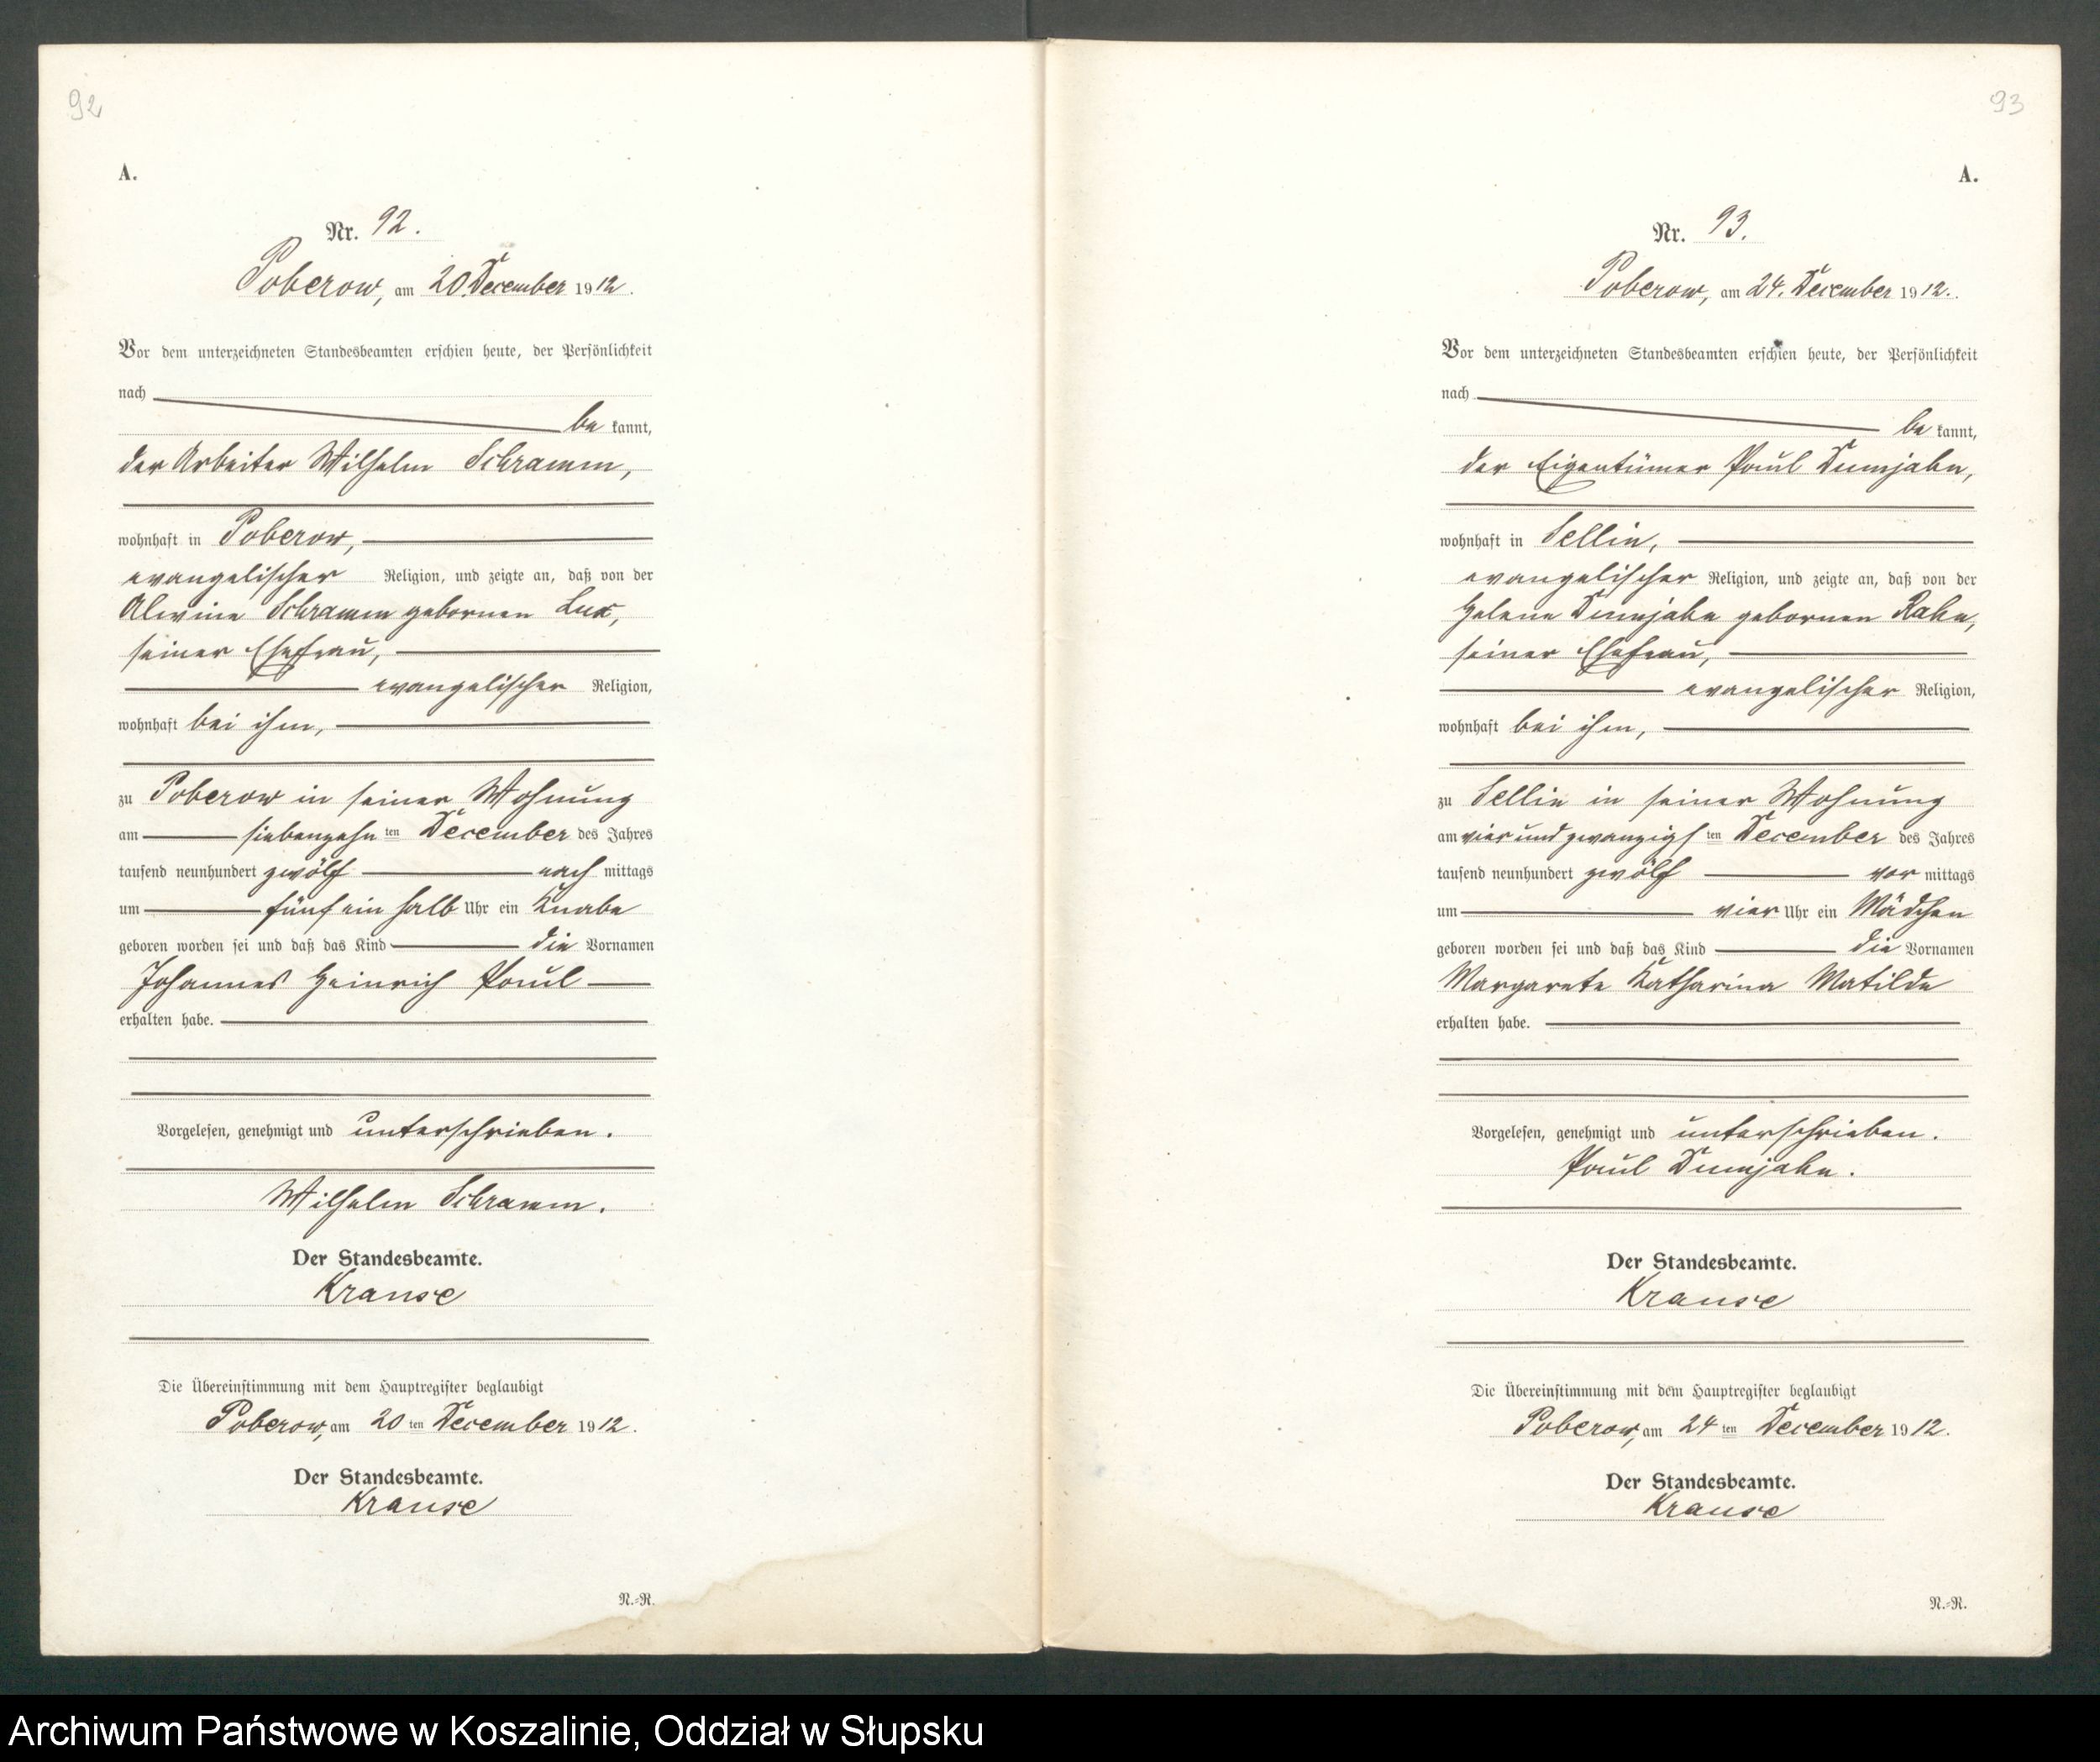 92
A.
Nr. 92.
Poberow, am 20. December 1912.
Vor dem unterzeichneten Standesbeamten erschien heute, der Persönlichkeit
nach
be kannt,
der Arbeiter Wilhelm Schramm,
wohnhaft in Poberow,
evangelischer Religion, und zeigte an, daß von der
Alwine Schramm gebornen Lux,
seiner Ehefrau,
evangelischer Religion,
wohnhaft bei ihm,
zu Poberow in seiner Wohnung
am siebenzehn ten December des Jahres
tausend neunhundert zwölf nach mittags
um fünf ein halb Uhr ein Knabe
geboren worden sei und daß das Kind die Vornamen
Johannes Heinrich Paul
erhalten habe.
Vorgelesen, genehmigt und unterschrieben.
Wilhelm Schramm.
Der Standesbeamte.
Krause
Die Übereinstimmung mit dem Hauptregister beglaubigt
Poberow, am 20 ten December 1912.
Der Standesbeamte.
Krause
N.-R.
93
A.
Nr. 93.
Poberow, am 24. December 1912.
Vor dem unterzeichneten Standesbeamten erschien heute, der Persönlichkeit
nach
be kannt,
der Eigentümer Paul Dumjahn,
wohnhaft in Sellin,
evangelischer Religion, und zeigte an, daß von der
Helene Dumjahn gebornen Rahn,
seiner Ehefrau,
evangelischer Religion,
wohnhaft bei ihm,
zu Sellin in seiner Wohnung
am vier und zwanzigs ten December des Jahres
tausend neunhundert zwölf vor mittags
um vier Uhr ein Mädchen
geboren worden sei und daß das Kind die Vornamen
Margarete Katharina Matilde
erhalten habe.
Vorgelesen, genehmigt und unterschrieben.
Paul Dumjahn.
Der Standesbeamte.
Krause
Die Übereinstimmung mit dem Hauptregister beglaubigt
Poberow, am 24 ten December 1912.
Der Standesbeamte.
Krause
N.-R.
Archiwum Państwowe w Koszalinie, Oddział w Słupsku